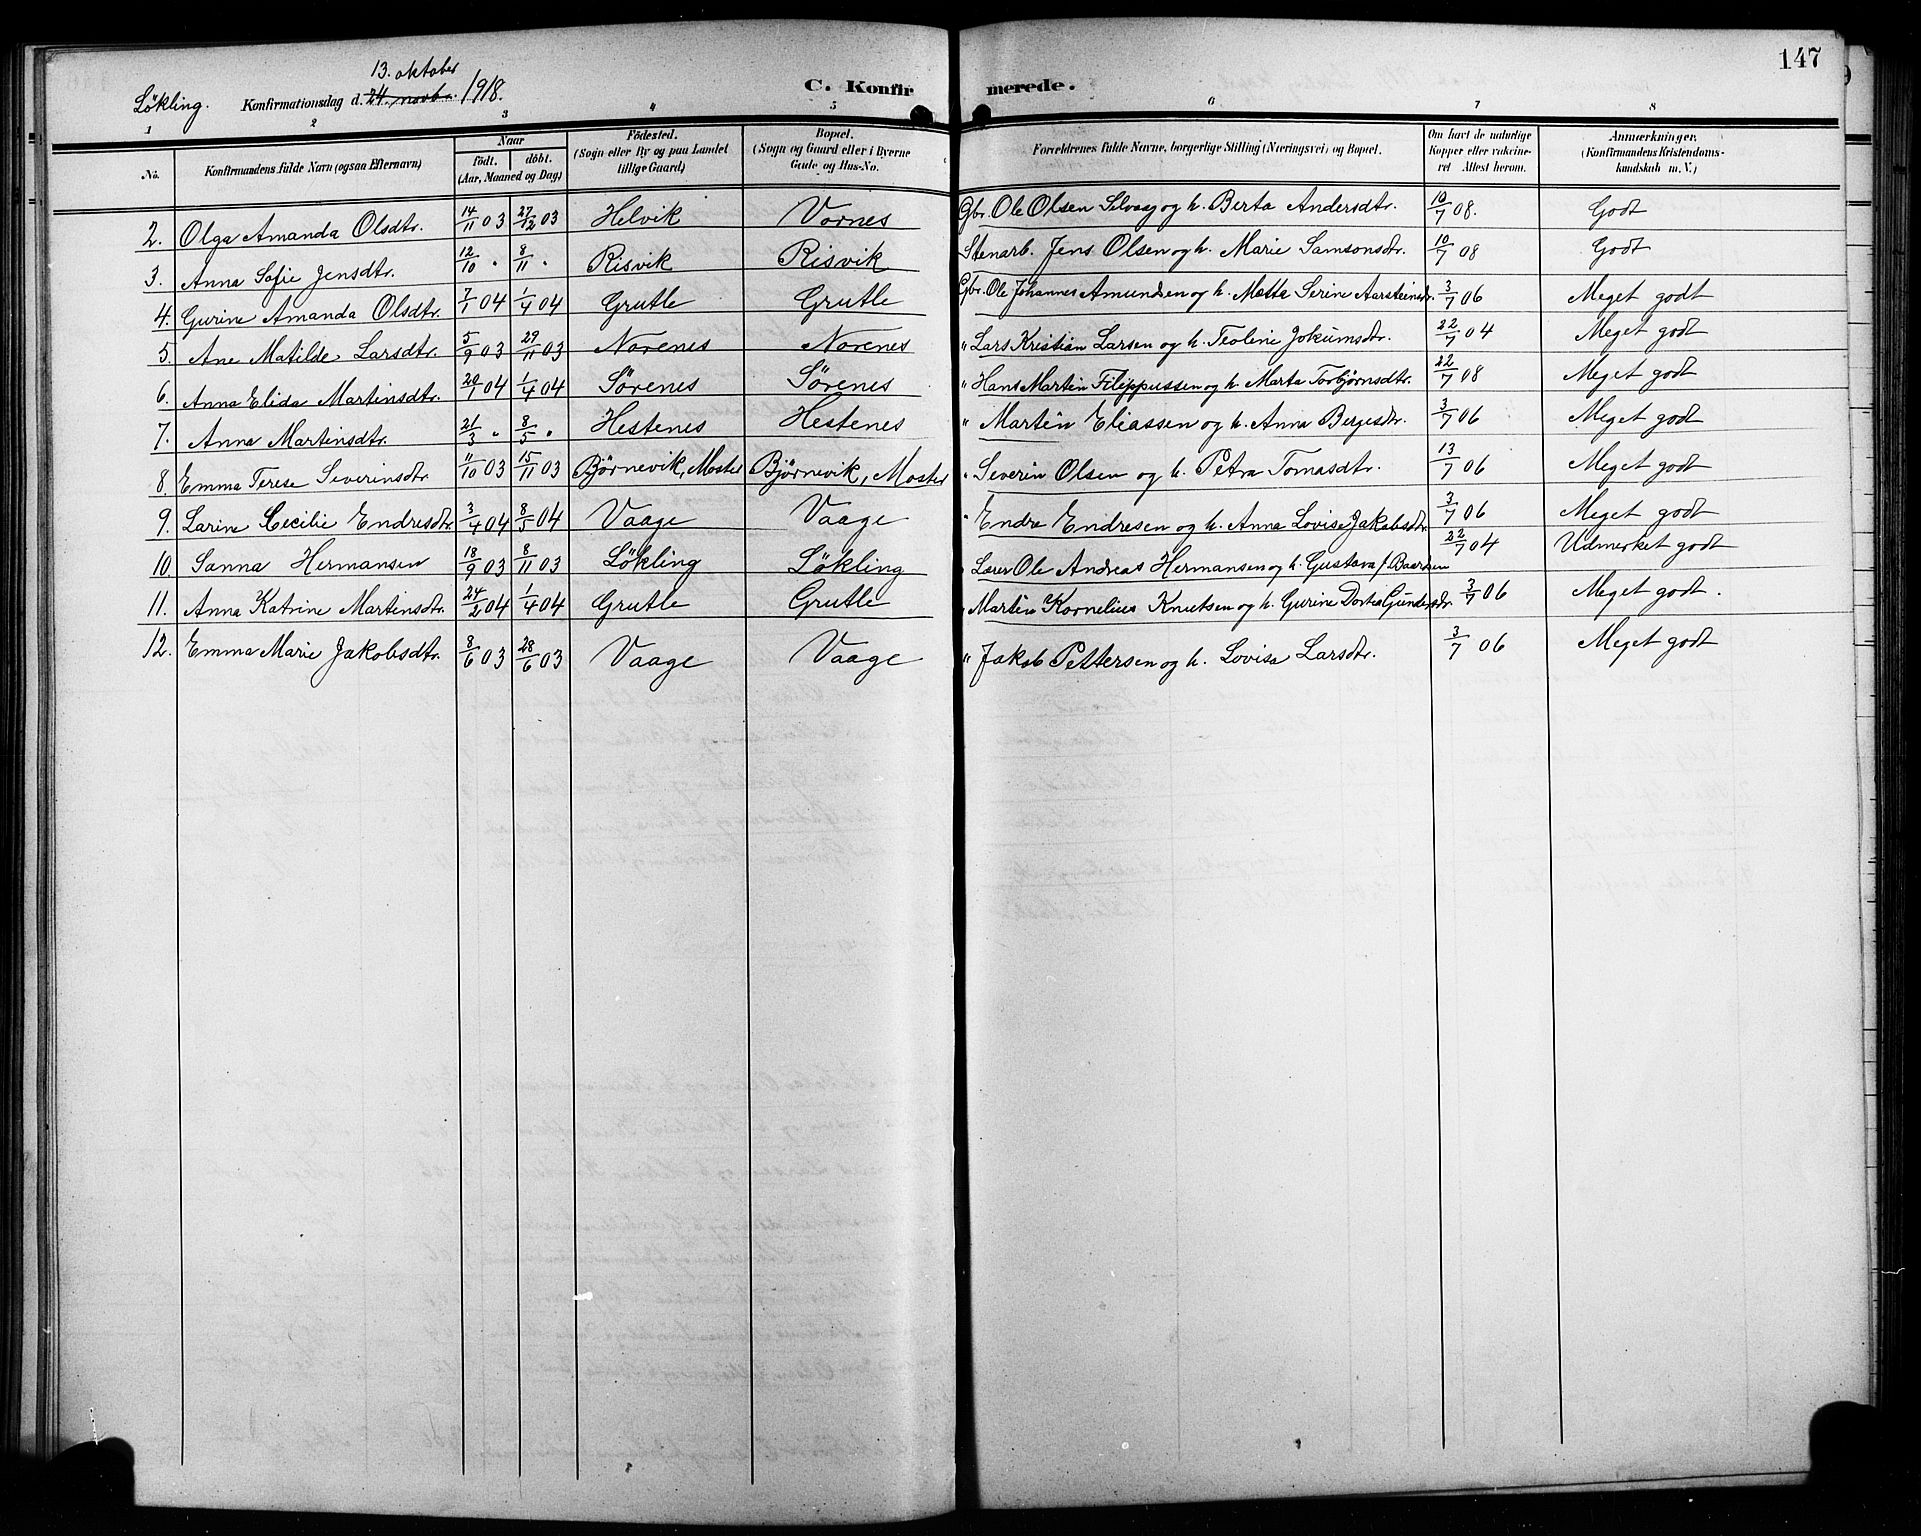 147
13. oktober
Løkling. Konfirmationsdag d. 24. novbr. 1918. C. Konfirmerede.
1 2 3 4 5 6 7 8
No. Konfirmandens fulde Navn (ogsaa Efternavn) Naar födt. döbt. (Aar, Maaned og Dag) Födested. (Sogn eller By og paa Landet tillige Gaard) Bopæl. (Sogn og Gaard eller i Byerne Gade og Hus-No. Forældrenes fulde Navne, borgerlige Stilling (Næringsvei) og Bopæl. Om havt de naturlige Kopper eller vakcineret Attest herom. Anmærkninger. (Konfirmandens Kristendomskundskab m. V.)
2. Olga Amanda Olsdtr. 14/11 03 27/12 03 Helvik Vornes Gbr. Ole Olsen Selvaag og h. Berta Andersdtr. 10/7 08. Godt
3. Anna Sofie Jensdtr. 12/10 " 8/11 " Risvik Risvik Stenarb. Jens Olsen og h. Marie Samsonsdtr. 10/7 08 Godt
4. Gurine Amanda Olsdtr. 7/1 04 1/4 04 Grutle Grutle Gbr. Ole Johannes Amundsen og h. Metta Serine Aarsteinsdtr. 3/7 06 Meget godt
5. Ane Matilde Larsdtr. 5/9 03 29/11 03 Norenes Norenes " Lars Kristian Larsen og h. Teoline Jokumsdtr. 22/7 04 Meget godt
6. Anna Elida Martinsdtr. 20/1 04 1/4 04 Sørenes Sørenes " Hans Martin Filippussen og h. Marta Torbjørnsdtr. 22/7 08 Meget godt
7. Anna Martinsdtr. 21/3 " 8/5 " Hestenes Hestenes " Martin Eliassen og h. Anna Bergesdtr. 3/7 06 Meget godt
8. Emma Terese Severinsdtr. 11/10 03 15/11 03 Bjørnevik, Moster Bjørnevik, Moster " Severin Olsen og h. Petra Tomasdtr. 13/7 06 Meget godt
9. Larine Cecilie Endresdtr. 3/4 04 8/5 04 Vaage Vaage " Endre Endresen og h. Anna Lovise Jakobsdtr. 3/7 06 Meget godt
10. Sanna Hermansen 18/9 03 8/11 03 Løkling Løkling Lærer Ole Andreas Hermansen og h. Gustava f. Baardsen 22/7 04 Udmerket godt
11. Anna Katrine Martinsdtr. 24/2 04 1/4 04 Grutle Grutle " Martin Kornelius Knutsen og h. Gurine Dortea Gundersdtr. 3/7 06 Meget godt.
12. Emma Marie Jakobsdtr. 8/6 03 28/6 03 Vaage Vaage " Jakob Pettersen og h. Lovise Larsdtr. 3/7 06 Meget godt